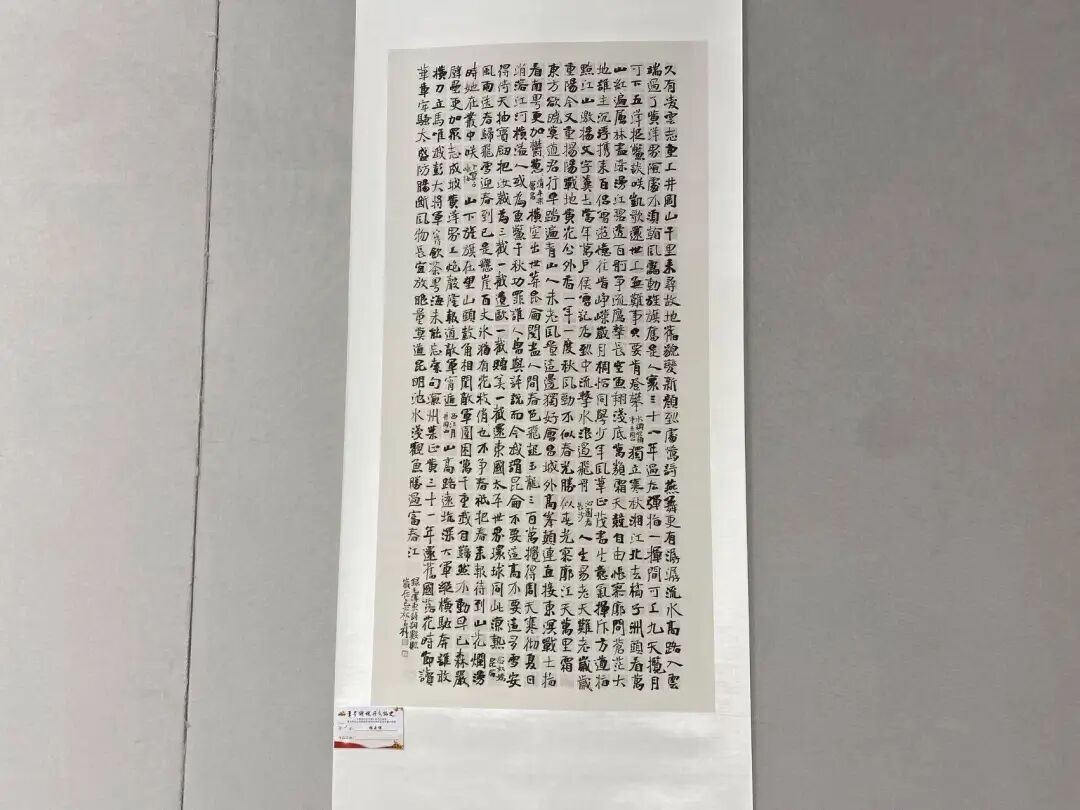 久有凌雲志重上井岡山千里來尋故地舊貌變新顏到處鶯詩燕舞更有潺潺流水高路入雲
端過了黃洋界險處不須看風雷動旌旗奮是人寰三十一年過去彈指一揮間可上九天攬月
可下五洋捉鱉談笑凱歌還世上無難事只要肯登攀 水調歌頭 獨立寒秋湘江北去橘子洲頭看萬
山紅遍層林盡染漫江碧透百舸爭流鷹擊長空魚翔淺底萬類霜天競自由悵寥廓問蒼茫大
地誰主沉浮攜來百侶曾遊憶往昔崢嶸歲月稠恰同學少年風華正茂書生意氣揮斥方遒指
點江山激揚文字糞土當年萬戶侯曾記否到中流擊水浪遏飛舟 沁園春 長沙 人生易老天難老歲歲
重陽今又重陽戰地黃花分外香一年一度秋風勁不似春光勝似春光寥廓江天萬里霜
東方欲曉莫道君行早踏遍青山人未老風景這邊獨好會昌城外高峯顛連直接東溟戰士指
看南粵更加鬱蔥 清平樂 會昌 橫空出世莽昆侖閱盡人間春色飛起玉龍三百萬攪得周天寒徹夏日
消溶江河橫溢人或為魚鱉千秋功罪誰人曾與評說而今我謂昆侖不要這高不要這多雪安
得倚天抽寶劍把汝裁為三截一截遺歐一截贈美一截還東國太平世界環球同此涼熱 念奴嬌 昆侖
風雨送春歸飛雪迎春到已是懸崖百丈冰猶有花枝俏也不爭春祇把春來報待到山花爛漫
時她在叢中咲 卜算子 咏梅 山下旌旗在望山頭鼓角相聞敵軍圍困萬千重我自巋然不動早已森嚴
壁壘更加眾志成城黃洋界上炮聲隆報道敵軍宵遁 西江月 井岡山 山高路遠坑深大軍縱橫馳奔誰敢
橫刀立馬唯我彭大將軍 六言詩 飲茶粵海未能忘索句渝州葉正黃三十一年還舊國落花時節讀
華章牢騷太盛防腸斷風物長宜放眼量莫道昆明池水淺觀魚勝過富春江
錄毛澤東詩詞數首